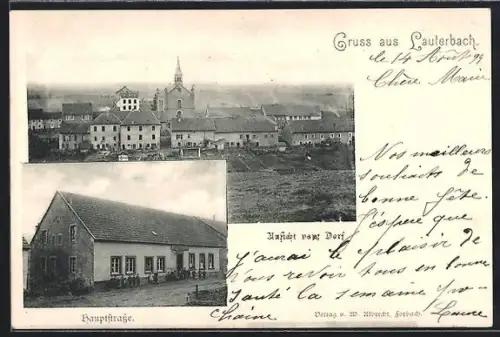 Gruss aus Lauterbach.
le 14 Août 99
Chère Marie
Nos meilleurs
souhaits de
bonne fête.
J'espère que
j'aurai le plaisir de
vous revoir tous en bonne
santé la semaine pro-
chaine.
Laure
Ansicht vom Dorf
Hauptstraße.
Verlag v. W. Albrecht, Forbach.